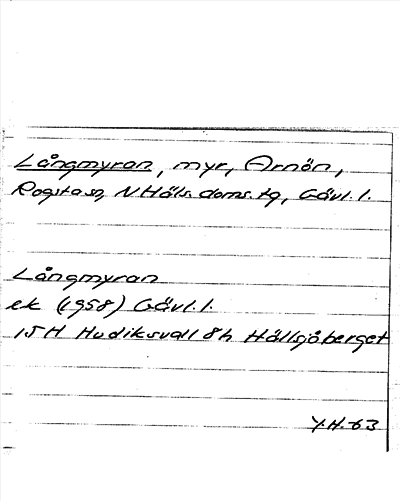 Långmyran, myr, Arnön,
Rogsta sn, N Häls. doms. tg, Gävl. l.
Långmyran
ek (1958) Gävl. l.
15H Hudiksvall 8h Hällsjöberget
Y.H. 63